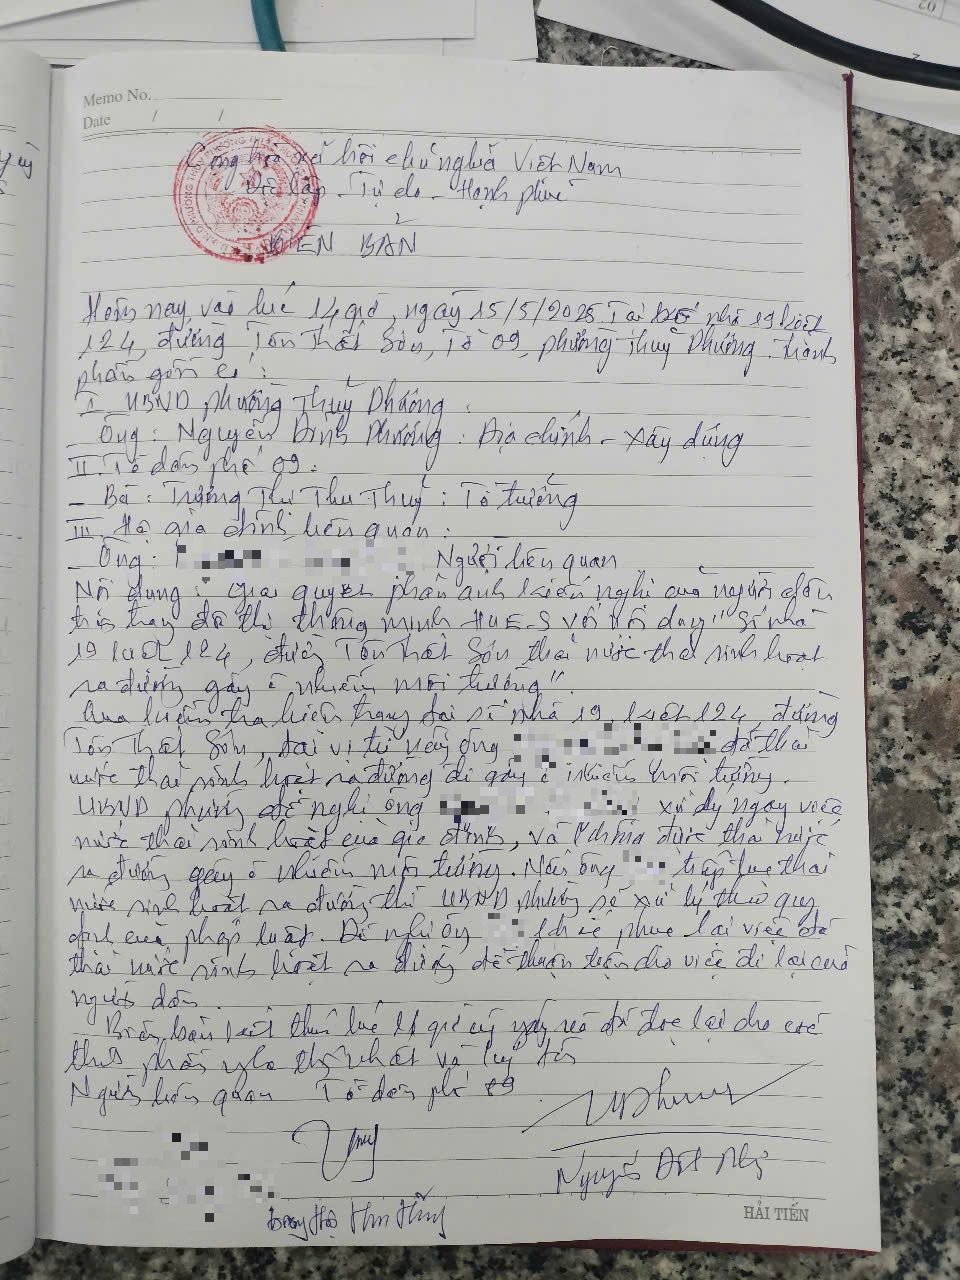 Memo No.
Date / /
Cộng hoà xã hội chủ nghĩa Việt Nam
Độc lập - Tự do - Hạnh phúc
BIÊN BẢN
Hôm nay, vào lúc 14 giờ, ngày 15/5/2025 Tại số nhà 19 kiệt
124, đường Tôn Thất Sơn, Tổ 09, phường Thuỷ Phương. thành
phần gồm có:
I UBND phường Thuỷ Phương:
- Ông: Nguyễn Đình Phương: Địa chính - Xây dựng
II. Tổ dân phố 09:
- Bà: Trương Thị Thu Thuỷ: Tổ trưởng
III. Hộ gia đình liên quan:
- Ông: Người liên quan
Nội dung: Giải quyết phản ánh kiến nghị của người dân
trên trang đô thị thông minh HUE-S với nội dung "Số nhà
19 kiệt 124, đường Tôn Thất Sơn thải nước thải sinh hoạt
ra đường gây ô nhiễm môi trường".
Qua kiểm tra hiện trạng tại số nhà 19 kiệt 124, đường
Tôn Thất Sơn, tại vị trí này ông đã thải
nước thải sinh hoạt ra đường đi gây ô nhiễm môi trường.
UBND phường đề nghị ông xử lý ngay việc
nước thải sinh hoạt của gia đình, và không được thải nước
ra đường gây ô nhiễm môi trường. Nếu ông tiếp tục thải
nước sinh hoạt ra đường thì UBND phường sẽ xử lý theo quy
định của pháp luật. Đề nghị ông khắc phục lại việc đã
thải nước sinh hoạt ra đường để thuận tiện cho việc đi lại của
người dân.
Biên bản kết thúc lúc giờ cùng ngày và đã đọc lại cho các
thành phần nghe thống nhất và ký tên
Người liên quan Tổ dân phố 09
HẢI TIẾN